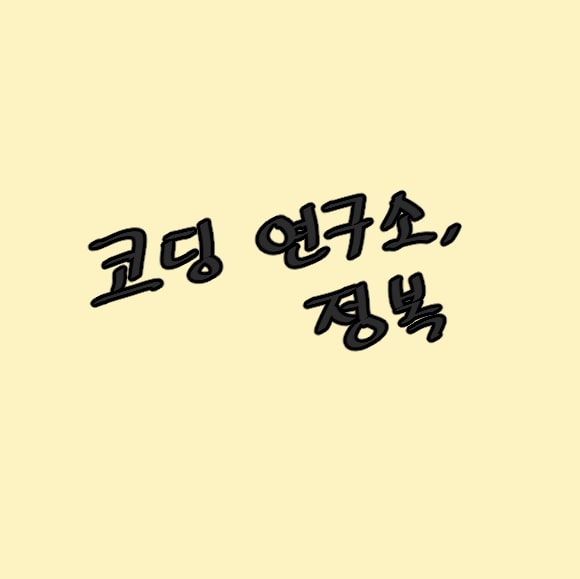 코딩 연구소,
정복